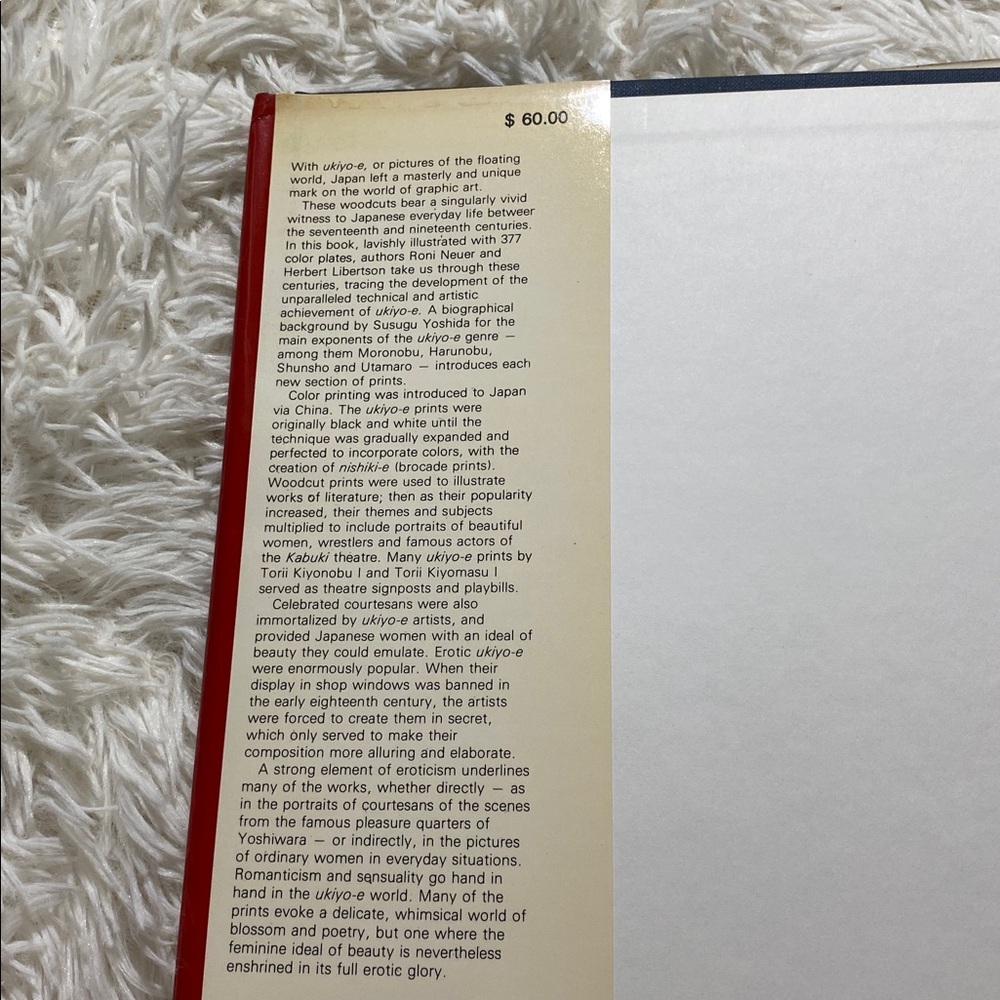 $ 60.00
With ukiyo-e, or pictures of the floating
world, Japan left a masterly and unique
mark on the world of graphic art.
These woodcuts bear a singularly vivid
witness to Japanese everyday life between
the seventeenth and nineteenth centuries.
In this book, lavishly illustrated with 377
color plates, authors Roni Neuer and
Herbert Libertson take us through these
centuries, tracing the development of the
unparalleled technical and artistic
achievement of ukiyo-e. A biographical
background by Susugu Yoshida for the
main exponents of the ukiyo-e genre —
among them Moronobu, Harunobu,
Shunsho and Utamaro — introduces each
new section of prints.
Color printing was introduced to Japan
via China. The ukiyo-e prints were
originally black and white until the
technique was gradually expanded and
perfected to incorporate colors, with the
creation of nishiki-e (brocade prints).
Woodcut prints were used to illustrate
works of literature; then as their popularity
increased, their themes and subjects
multiplied to include portraits of beautiful
women, wrestlers and famous actors of
the Kabuki theatre. Many ukiyo-e prints by
Torii Kiyonobu I and Torii Kiyomasu I
served as theatre signposts and playbills.
Celebrated courtesans were also
immortalized by ukiyo-e artists, and
provided Japanese women with an ideal of
beauty they could emulate. Erotic ukiyo-e
were enormously popular. When their
display in shop windows was banned in
the early eighteenth century, the artists
were forced to create them in secret,
which only served to make their
composition more alluring and elaborate.
A strong element of eroticism underlines
many of the works, whether directly — as
in the portraits of courtesans of the scenes
from the famous pleasure quarters of
Yoshiwara — or indirectly, in the pictures
of ordinary women in everyday situations.
Romanticism and sensuality go hand in
hand in the ukiyo-e world. Many of the
prints evoke a delicate, whimsical world of
blossom and poetry, but one where the
feminine ideal of beauty is nevertheless
enshrined in its full erotic glory.